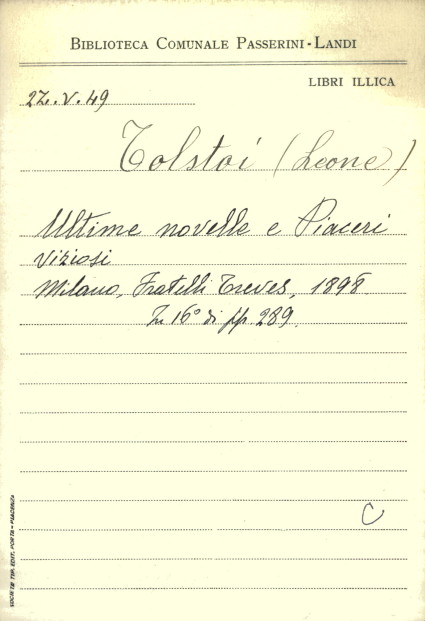 BIBLIOTECA COMUNALE PASSERINI-LANDI
LIBRI ILLICA
22.V.49
Tolstoi (Leone)
Ultime novelle e Piaceri
viziosi
Milano, Fratelli Treves, 1898
In 16° di pp 289.
C